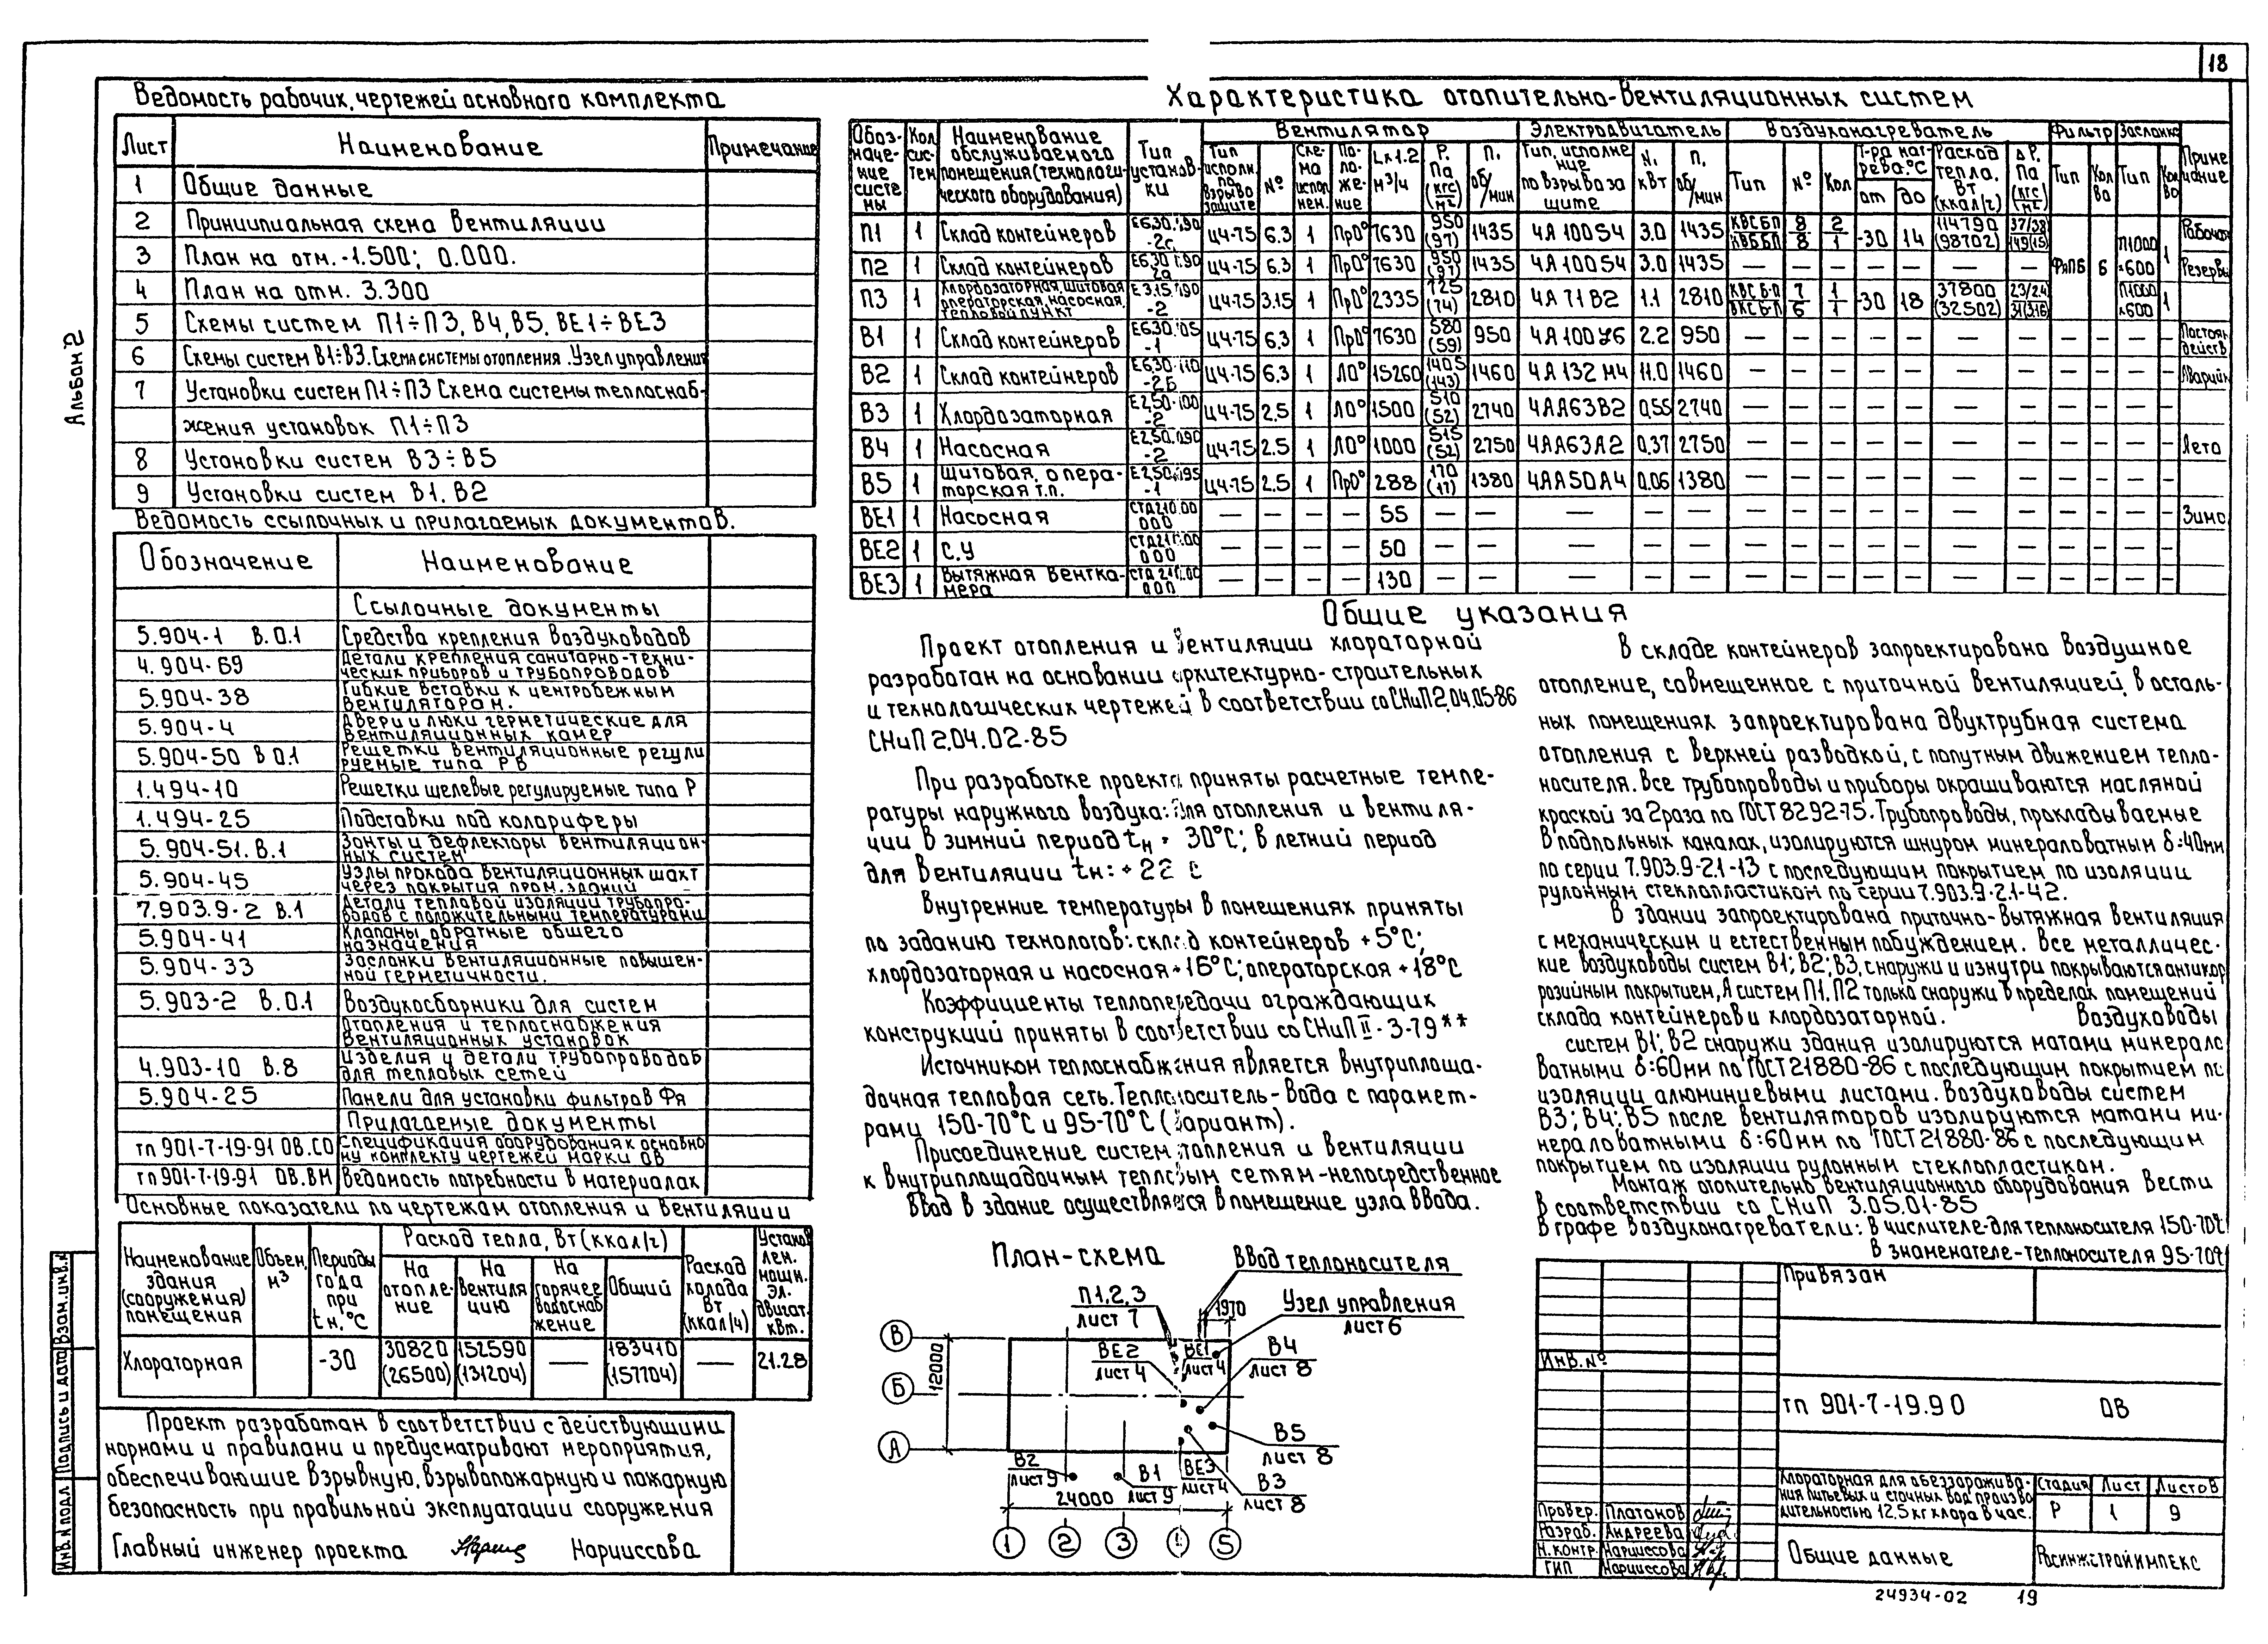 18
Альбом 2
Ведомость рабочих чертежей основного комплекта
Лист Наименование Примечание
1 Общие данные
2 Принципиальная схема вентиляции
3 План на отм. -1.500; 0.000.
4 План на отм. 3.300
5 Схемы систем П1÷П3, В4, В5, ВЕ1÷ВЕ3
6 Схемы систем В1÷В3. Схема системы отопления. Узел управления
7 Установки систем П1÷П3 Схема системы теплоснаб-
жения установок П1÷П3
8 Установки систем В3÷В5
9 Установки систем В1, В2
Ведомость ссылочных и прилагаемых документов.
Обозначение Наименование
Ссылочные документы
5.904-1 В.0.1 Средства крепления воздуховодов
4.904-69 Детали крепления санитарно-техни-
ческих приборов и трубопроводов
5.904-38 Гибкие вставки к центробежным
вентиляторам.
5.904-4 Двери и люки герметические для
вентиляционных камер
5.904-50 В 0.1 Решетки вентиляционные регули
руемые типа РВ
1.494-10 Решетки щелевые регулируемые типа Р
1.494-25 Подставки под калориферы
5.904-51.В.1 Зонты и дефлекторы вентиляцион-
ных систем
5.904-45 Узлы прохода вентиляционных шахт
через покрытия пром. зданий
7.903.9-2 В.1 Детали тепловой изоляции трубопро-
водов с положительными температурами
5.904-41 Клапаны обратные общего
назначения
5.904-33 Заслонки вентиляционные повышен-
ной герметичности.
5.903-2 В.0.1 Воздухосборники для систем
отопления и теплоснабжения
вентиляционных установок
4.903-10 В.8 Изделия и детали трубопроводов
для тепловых сетей
5.904-25 Панели для установки фильтров Фя
Прилагаемые документы
тп 901-7-19-91 ОВ.СО Спецификация оборудования к основно
му комплекту чертежей марки ОВ
тп 901-7-19-91 ОВ.ВМ Ведомость потребности в материалах
Основные показатели по чертежам отопления и вентиляции
Наименование здания (сооружения) помещения Объем, м³ Периоды года при tн, °С Расход тепла, Вт (ккал/г) Расход холода Вт (ккал/ч) Установ лен. мощн. эл. двигат. квт.
На отопле-ние На вентиля цию На горячее водоснаб жение Общий
Хлораторная -30 30820 (26500) 152590 (131204) — 183410 (157704) — 21.28
Проект разработан в соответствии с действующими
нормами и правилами и предусматривают мероприятия,
обеспечивающие взрывную, взрывопожарную и пожарную
безопасность при правильной эксплуатации сооружения
Главный инженер проекта Нарциссова
Характеристика отопительно-вентиляционных систем
Обоз-наче-ние систе мы Кол сис-тем Наименование обслуживаемого помещения (технологи-ческого оборудования) Тип установ-ки Вентилятор Электродвигатель Воздухонагреватель Фильтр Заслонка Приме чание
Тип исполн. по взрыво защите № Схе-ма испол нен. По-ло-же-ние Lх1.2 м³/ч Р, Па (кгс/м²) п, об/мин Тип, исполне ние по взрывоза щите N, кВт п, об/мин Тип № Кол Т-ра наг-рева, °С от до Расход тепла, Вт (ккал/г) ΔР, Па (кгс/м²) Тип Кол ва Тип Кол во
П1 1 Склад контейнеров Е6.30.190-2а Ц4-75 6.3 1 Пр0° 7630 950 (97) 1435 4А100S4 3.0 1435 КВСБП КВББП 8 8 2 1 -30 14 114790 (98702) 37/38 149(15) ФяПБ 6 П1000×600 1 Рабочая
П2 1 Склад контейнеров Ц4-75 6.3 1 Пр0° 7630 950 (97) 1435 4А100S4 3.0 1435 — — — — — — — Резервн
П3 1 Хлордозаторная, щитовая, операторская, насосная, тепловой пункт Е3.15.190-2 Ц4-75 3.15 1 Пр0° 2335 725 (74) 2810 4А71В2 1.1 2810 7 6 1 1 -30 18 37800 (32502) 23/24 П1000×600 1
В1 1 Склад контейнеров Е6.30.105-1 Ц4-75 6.3 1 Пр0° 7630 580 (59) 950 2.2 950 — — — — — — — — — — — Постоян действ
В2 1 Склад контейнеров Е6.30.110-2б Ц4-75 6.3 1 Л0° 15260 1405 (143) 1460 4А132М4 11.0 1460 — — — — — — — — — — — Аварийн
В3 1 Хлордозаторная Е2,50.100-2 Ц4-75 2.5 1 Л0° 1500 510 (52) 2740 4АА63В2 0.55 2740 — — — — — — — — — — —
В4 1 Насосная Е2.50.090-2 Ц4-75 2.5 1 Л0° 1000 515 (52) 2750 4АА63А2 0.37 2750 — — — — — — — — — — — Лето
В5 1 Щитовая, опера-торская т.п. Е2,50.095-1 Ц4-75 2.5 1 Пр0° 288 170 (17) 1380 4АА50А4 0.06 1380 — — — — — — — — — — —
ВЕ1 1 Насосная СТД210.00 000 — — — — 55 — — — — — — — — — — — — — — — — Зимо
ВЕ2 1 С.У СТД210.00 000 — — — — 50 — — — — — — — — — — — — — — — —
ВЕ3 1 Вытяжная вентка-мера СТД210.00 000 — — — — 130 — — — — — — — — — — — — — — — —
Общие указания
Проект отопления и вентиляции хлораторной
разработан на основании архитектурно-строительных
и технологических чертежей в соответствии со СНиП 2.04.05-86
СНиП 2.04.02-85
При разработке проекта приняты расчетные темпе-
ратуры наружного воздуха: для отопления и вентиля-
ции в зимний период tн = 30°С; в летний период
для вентиляции tн: + 22 С
Внутренние температуры в помещениях приняты
по заданию технологов: склад контейнеров +5°С;
хлордозаторная и насосная +16°С; операторская +18°С
Коэффициенты теплопередачи ограждающих
конструкций приняты в соответствии со СНиП II-3-79**
Источником теплоснабжения является внутриплоща-
дочная тепловая сеть. Теплоноситель-вода с парамет-
рами 150-70°С и 95-70°С (вариант).
Присоединение систем отопления и вентиляции
к внутриплощадочным тепловым сетям-непосредственное
Ввод в здание осуществляется в помещение узла ввода.
В складе контейнеров запроектировано воздушное
отопление, совмещенное с приточной вентиляцией, в осталь-
ных помещениях запроектирована двухтрубная система
отопления с верхней разводкой, с попутным движением тепло-
носителя. Все трубопроводы и приборы окрашиваются масляной
краской за 2 раза по ГОСТ 8292-75. Трубопроводы, прокладываемые
в подпольных каналах, изолируются шнуром минераловатным δ=40мм
по серии 7.903.9-2.1-13 с последующим покрытием по изоляции
рулонным стеклопластиком по серии 7.903.9-2.1-42.
В здании запроектирована приточно-вытяжная вентиляция
с механическим и естественным побуждением. Все металличес-
кие воздуховоды систем В1; В2; В3, снаружи и изнутри покрываются антикор
розийным покрытием, А систем П1, П2 только снаружи в пределах помещений
склада контейнеров и хлордозаторной. Воздуховоды
систем В1; В2 снаружи здания изолируются матами минерало
ватными δ=60мм по ГОСТ 21880-86 с последующим покрытием по
изоляции алюминиевыми листами. Воздуховоды систем
В3; В4; В5 после вентиляторов изолируются матами ми-
нераловатными δ=60мм по ГОСТ 21880-86 с последующим
покрытием по изоляции рулонным стеклопластиком.
Монтаж отопительно вентиляционного оборудования вести
в соответствии со СНиП 3.05.01-85
В графе воздухонагреватели: в числителе-для теплоносителя 150-70°С
в знаменателе-теплоносителя 95-70°С
План-схема
Ввод теплоносителя
П1,2,3
лист 7
1970
Узел управления
лист 6
В
Б
А
12000
ВЕ2
лист 4
ВЕ1
лист 4
В4
лист 8
В5
лист 8
В2
лист 9
В1
лист 9
ВЕ3
лист 4
В3
лист 8
24000
1 2 3 5
Привязан
Инв. №
тп 901-7-19.90 ОВ
Хлораторная для обеззаражива-
ния питьевых и сточных вод произво
дительностью 12,5 кг хлора в час.
Стадия Лист Листов
Р 1 9
Провер. Платонов
Разраб. Андреева
Н.контр. Нарциссова
ГИП Нарциссова
Общие данные
Росинжстройимпекс
Инв. № подл Подпись и дата Взам. инв. №
24934-02 19